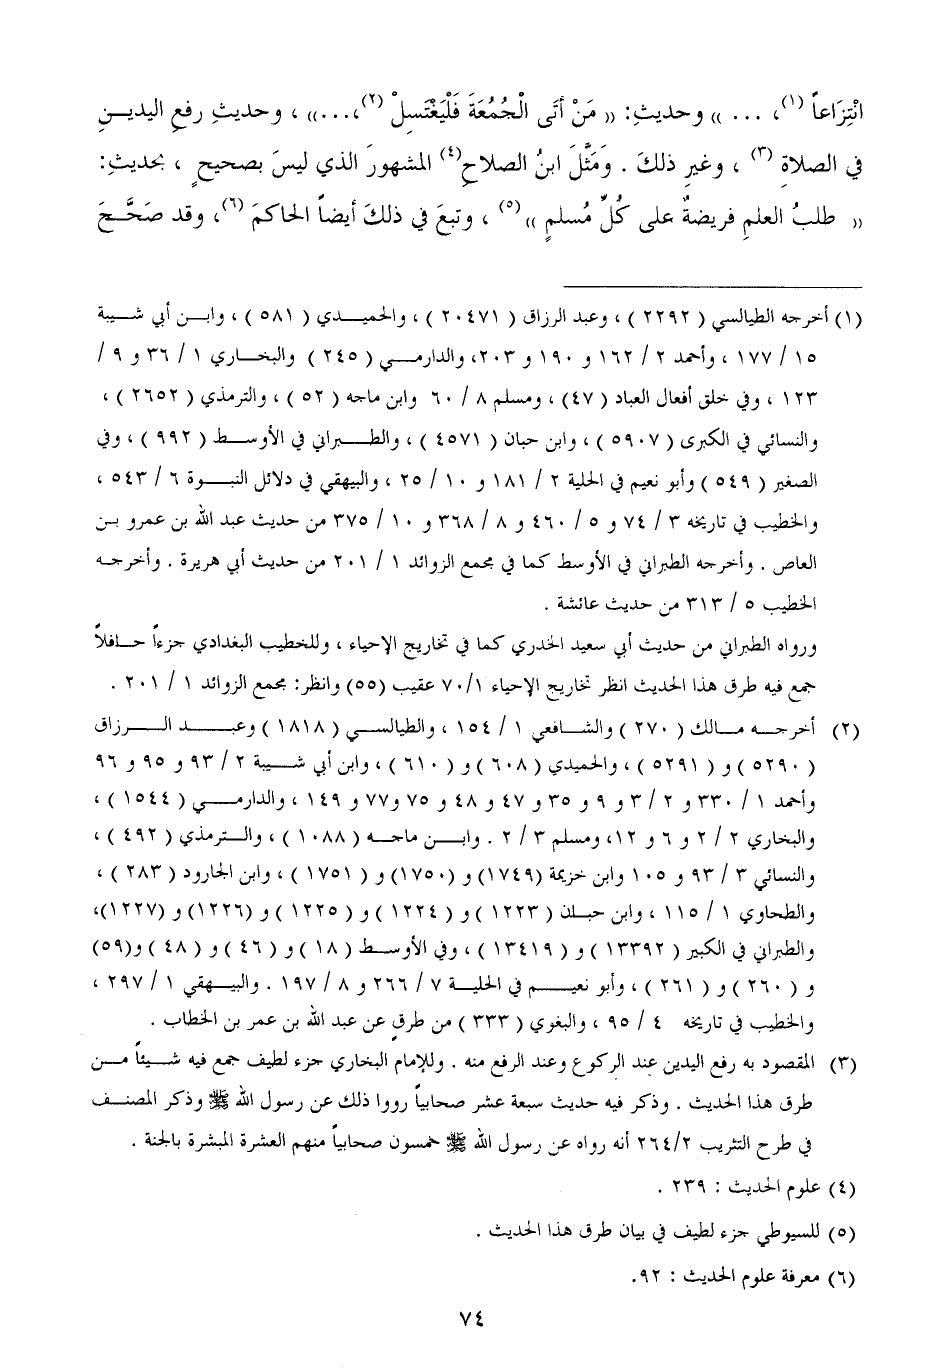 انْتِزَاعاً (١)، ... )) وحديث: (( مَنْ أتَى الْجُمُعَةَ فَلْيَغْتَسِلْ (٢)،...)) ، وحديثِ رفعِ اليدينِ
في الصلاةِ (٣) ، وغيرِ ذلكَ . وَمَثَّلَ ابنُ الصلاحِ(٤) المشهورَ الذي ليسَ بصحيحٍ ، بحديثِ:
(( طلبُ العلمِ فريضةٌ على كُلِّ مُسلمٍ ))(٥) ، وتبعَ في ذلكَ أيضاً الحاكمَ (٦)، وقد صَحَّحَ
(١) أخرجه الطيالسي ( ٢٢٩٢ ) ، وعبد الرزاق ( ٢٠٤٧١ ) ، والحميدي ( ٥٨١ ) ، وابن أبي شيبة
١٥ / ١٧٧ ، وأحمد ٢ / ١٦٢ و ١٩٠ و ٢٠٣، والدارمي ( ٢٤٥ ) والبخاري ١ / ٣٦ و ٩ /
١٢٣ ، وفي خلق أفعال العباد ( ٤٧) ، ومسلم ٨ / ٦٠ وابن ماجه ( ٥٢ ) ، والترمذي ( ٢٦٥٢ ) ،
والنسائي في الكبرى ( ٥٩٠٧ ) ، وابن حبان ( ٤٥٧١ ) ، والطبراني في الأوسط ( ٩٩٢ ) ، وفي
الصغير ( ٥٤٩ ) وأبو نعيم في الحلية ٢ / ١٨١ و ١٠ / ٢٥ ، والبيهقي في دلائل النبوة ٦ / ٥٤٣ ،
والخطيب في تاريخه ٣ / ٧٤ و ٥ / ٤٦٠ و ٨ / ٣٦٨ و ١٠ / ٣٧٥ من حديث عبد الله بن عمرو بن
العاص . وأخرجه الطبراني في الأوسط كما في مجمع الزوائد ١ / ٢٠١ من حديث أبي هريرة . وأخرجه
الخطيب ٥ / ٣١٣ من حديث عائشة .
ورواه الطبراني من حديث أبي سعيد الخدري كما في تخاريج الإحياء ، وللخطيب البغدادي جزءاً حافلاً
جمع فيه طرق هذا الحديث انظر تخاريج الإحياء ٧٠/١ عقيب (٥٥) وانظر: مجمع الزوائد ١ / ٢٠١ .
(٢) أخرجه مالك ( ٢٧٠ ) والشافعي ١ / ١٥٤ ، والطيالسي ( ١٨١٨ ) وعبد الرزاق
( ٥٢٩٠ ) و ( ٥٢٩١ ) ، والحميدي ( ٦٠٨ ) و ( ٦١٠ ) ، وابن أبي شيبة ٢ / ٩٣ و ٩٥ و ٩٦
وأحمد ١ / ٣٣٠ و ٢ / ٣ و ٩ و ٣٥ و ٤٧ و ٤٨ و ٧٥ و٧٧ و ١٤٩ ، والدارمي ( ١٥٤٤ ) ،
والبخاري ٢ / ٢ و ٦ و ١٢، ومسلم ٣ / ٢ . وابن ماجه ( ١٠٨٨ ) ، والترمذي ( ٤٩٢ ) ،
والنسائي ٣ / ٩٣ و ١٠٥ وابن خزيمة (١٧٤٩) و (١٧٥٠) و ( ١٧٥١ ) ، وابن الجارود ( ٢٨٣ ) ،
والطحاوي ١ / ١١٥ ، وابن حبان ( ١٢٢٣ ) و ( ١٢٢٤ ) و ( ١٢٢٥ ) و (١٢٢٦) و (١٢٢٧)،
والطبراني في الكبير ( ١٣٣٩٢ ) و ( ١٣٤١٩ ) ، وفي الأوسط ( ١٨ ) و ( ٤٦ ) و ( ٤٨ ) و(٥٩)
و ( ٢٦٠ ) و ( ٢٦١ ) ، وأبو نعيم في الحلية ٧ / ٢٦٦ و ٨ / ١٩٧ . والبيهقي ١ / ٢٩٧ ،
والخطيب في تاريخه ٤ / ٩٥ ، والبغوي ( ٣٣٣ ) من طرقٍ عن عبد الله بن عمر بن الخطاب .
(٣) المقصود به رفع اليدين عند الركوع وعند الرفع منه . وللإمام البخاري جزء لطيف جمع فيه شيئاً من
طرق هذا الحديث . وذكر فيه حديث سبعة عشر صحابياً رووا ذلك عن رسول الله ﷺ وذكر المصنف
في طرح التثريب ٢٦٤/٢ أنه رواه عن رسول الله ﷺ خمسون صحابياً منهم العشرة المبشرة بالجنة .
(٤) علوم الحديث : ٢٣٩ .
(٥) للسيوطي جزء لطيف في بيان طرق هذا الحديث .
(٦) معرفة علوم الحديث : ٩٢.
٧٤